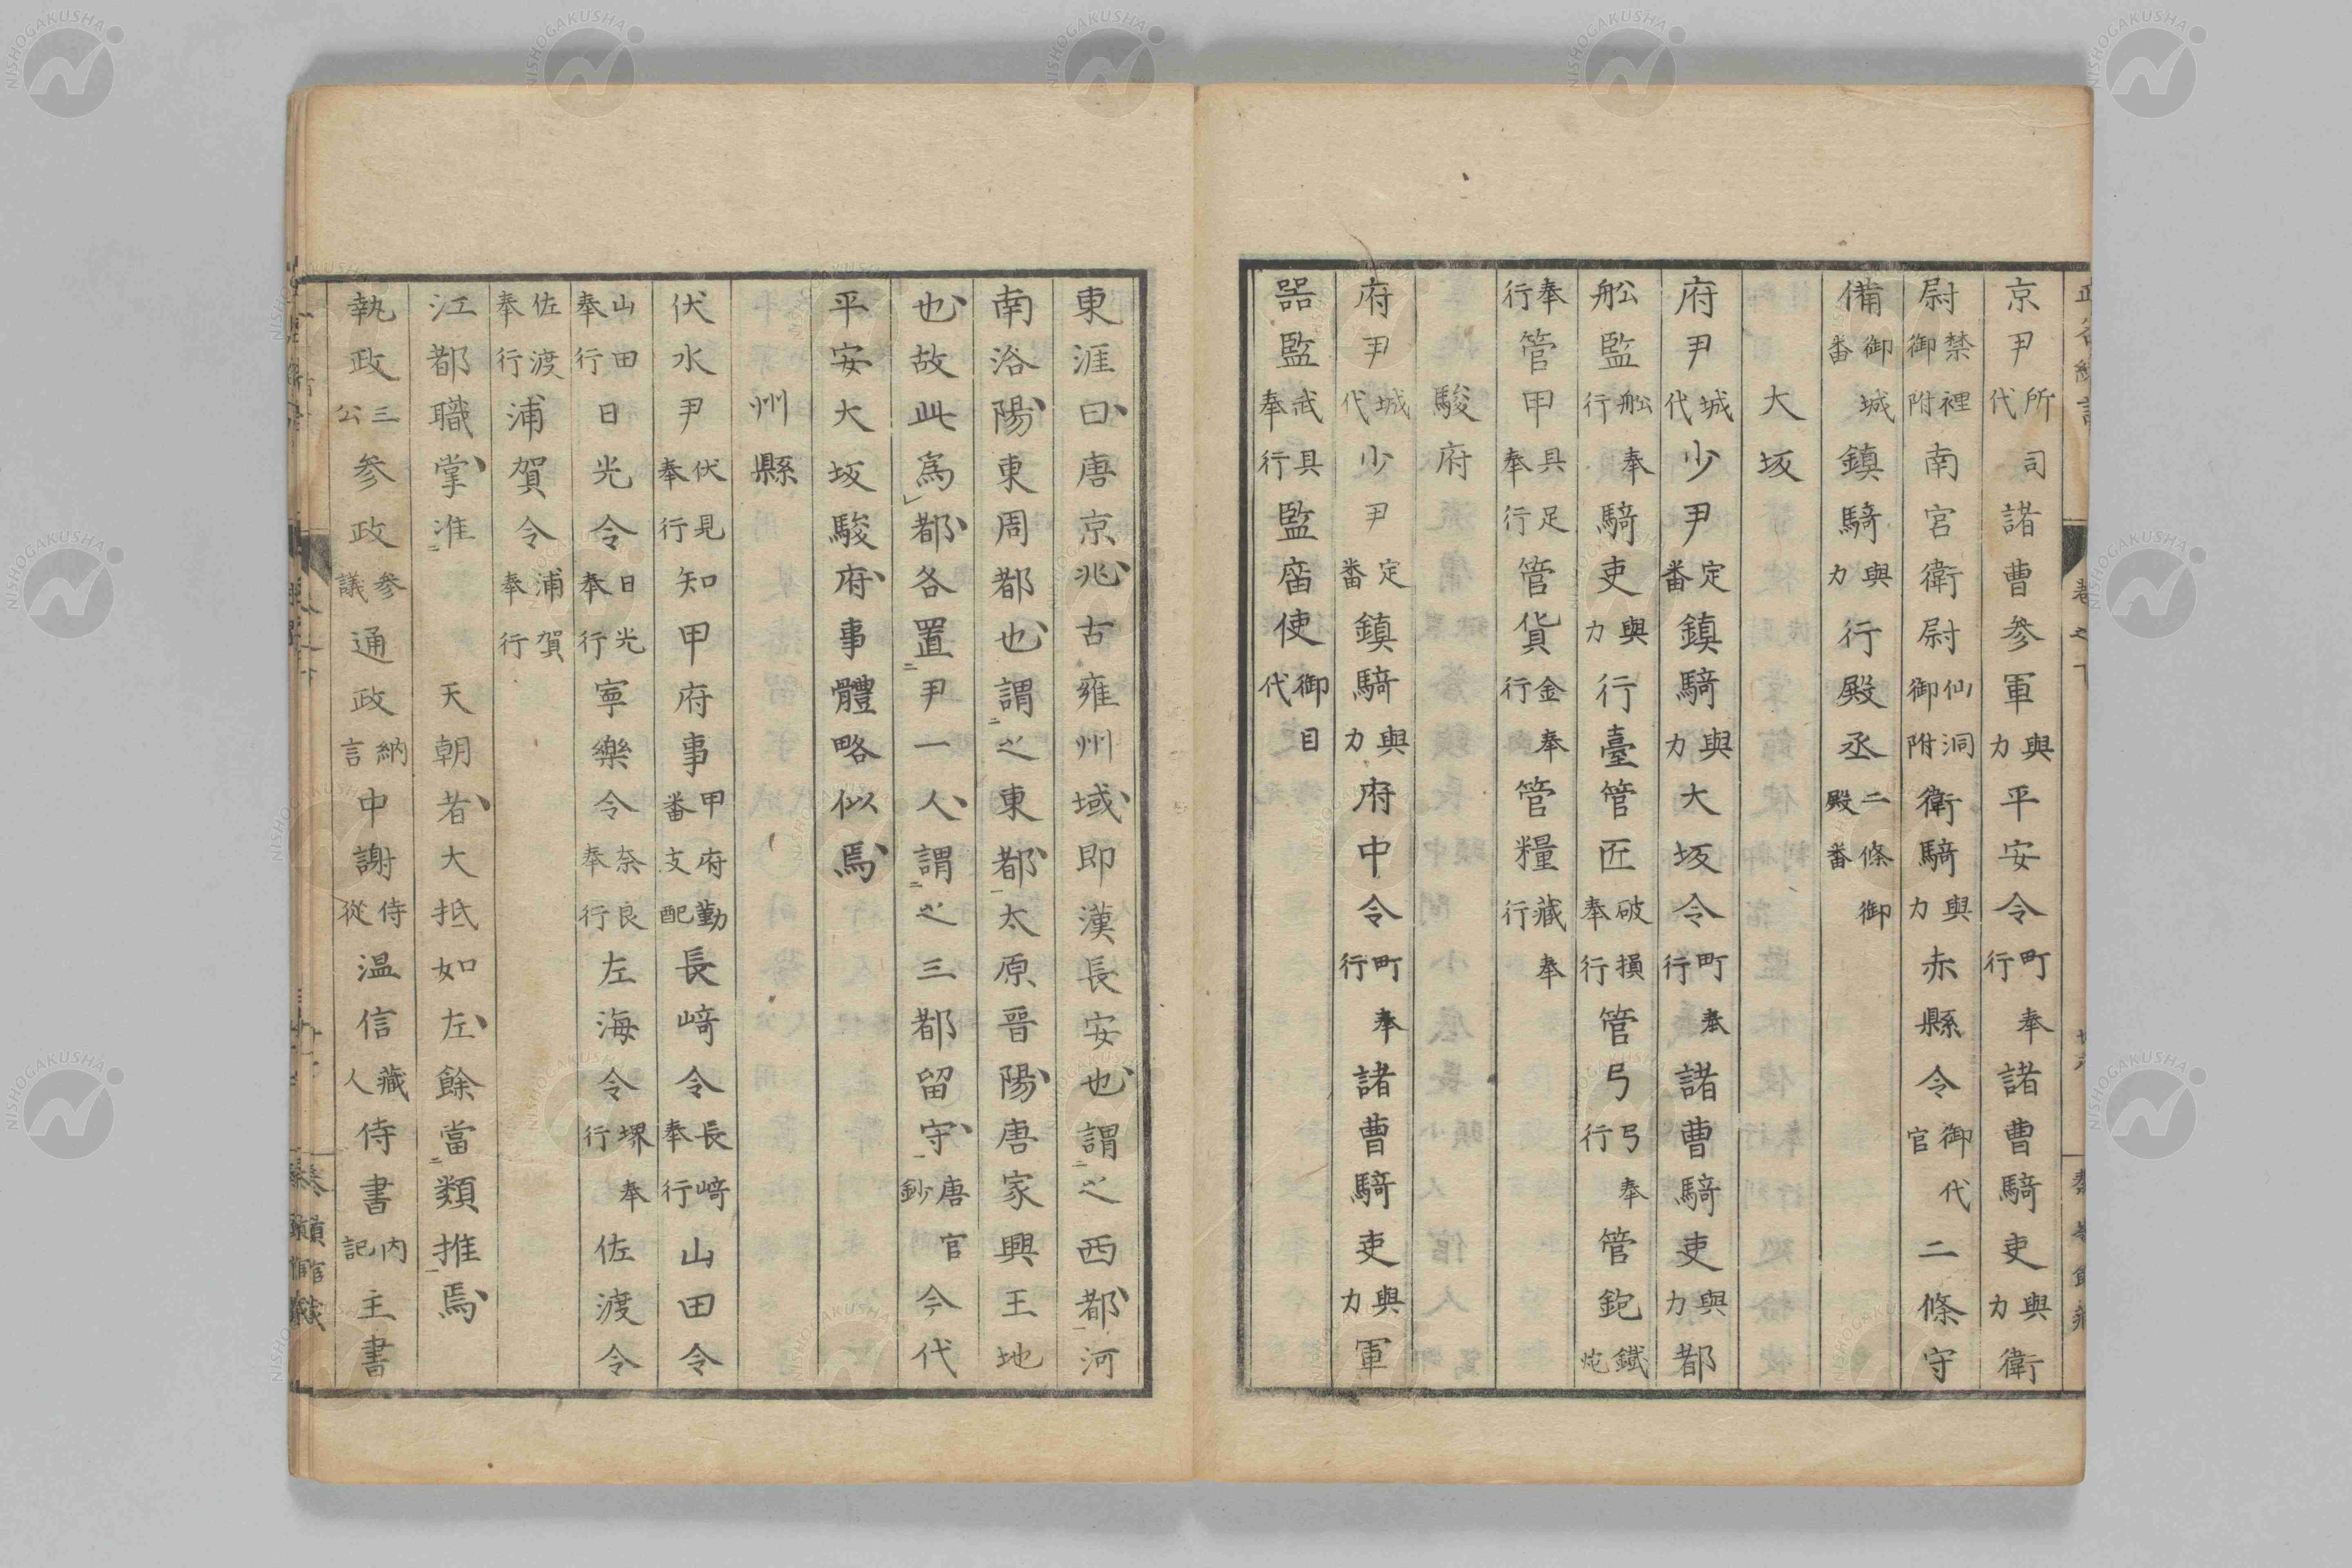 京尹所司代諸曹参軍與力平安令町奉行諸曹騎吏與力衛
尉禁裡御附南宮衛尉仙洞御附衛騎與力赤縣令御代官二條守
備御城番鎮騎與力行殿丞二條御殿番
大坂
府尹城代少尹定番鎮騎與力大坂令町奉行諸曹騎吏與力都
舩監舩奉行騎吏與力行臺管匠破損奉行管弓弓奉行管鉋鐵炮
奉行管甲具足奉行管貨金奉行管糧藏奉行
駿府
府尹城代少尹定番鎮騎與力府中令町奉行諸曹騎吏與力軍
器監武具奉行監庿使御目代
東涯曰唐京兆古雍州域即漢長安也謂之西都河
南洛陽東周都也謂之東都太原晉陽唐家興王地
也故此為都各置尹一人謂之三都留守唐官鈔今代
平安大坂駿府事體略似焉
州縣
伏水尹伏見奉行知甲府事甲府勤番支配長﨑令長﨑奉行山田令
山田奉行日光令日光奉行寧樂令奈良奉行左海令堺奉行佐渡令
佐渡奉行浦賀令浦賀奉行
江都職掌准 天朝者大抵如左餘當類推焉
執政三公参政参議通政納言中謝侍從温信藏人侍書内記主書
NISHOGAKUSHA